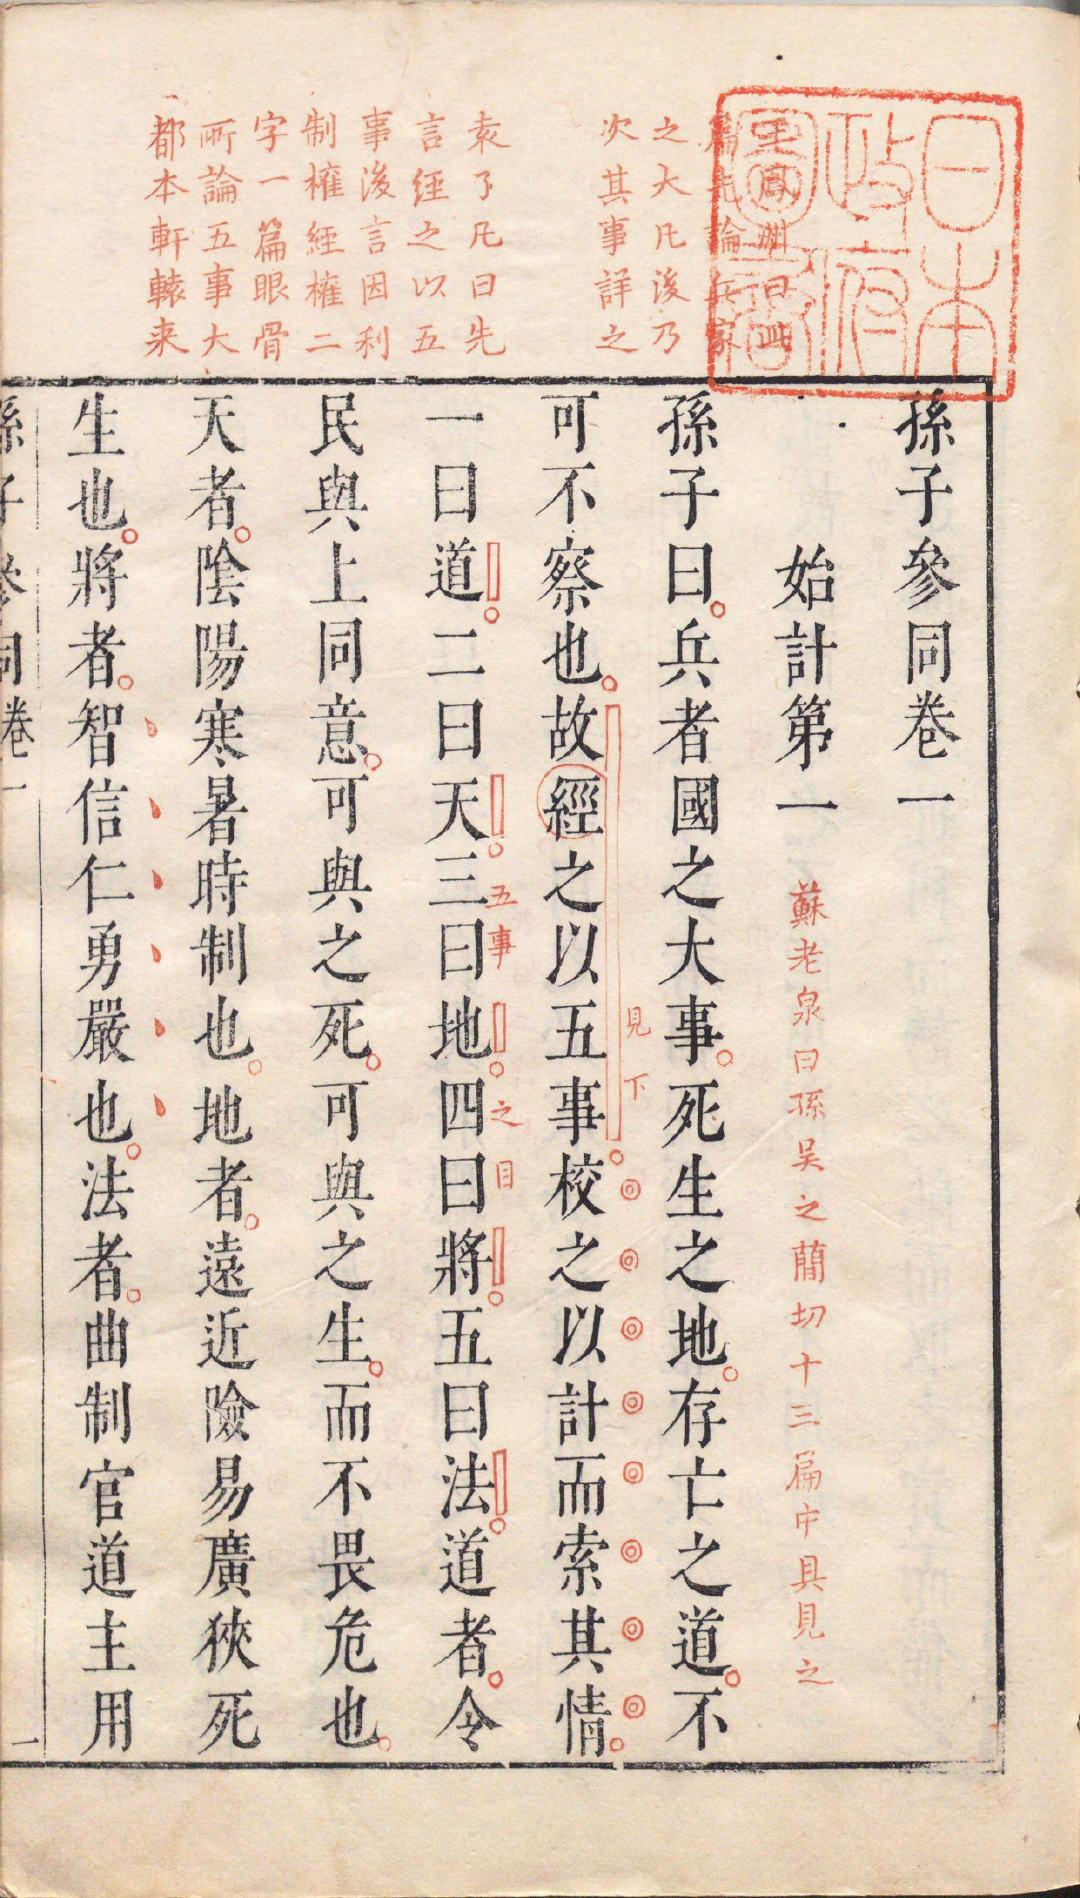 日本
政府
圖書
王鳳洲曰此
篇先論兵家
之大凡後乃
次其事詳之
袁了凡曰先
言經之以五
事後言因利
制權經權二
字一篇眼骨
所論五事大
都本軒轅来
孫子參同卷一
始計第一
蘇老泉曰孫吳之簡切十三篇中具見之
孫子曰兵者國之大事死生之地存亡之道不
可不察也故經之以五事校之以計而索其情
見下
一曰道二曰天三曰地四曰將五曰法道者令
五事之目
民與上同意可與之死可與之生而不畏危也
天者陰陽寒暑時制也地者遠近險易廣狹死
生也將者智信仁勇嚴也法者曲制官道主用
孫子參同卷一
一